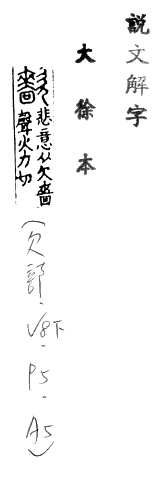 說文解字
大徐本
悲意从欠嗇
聲火力切
(欠部.V8下.P5.A5)